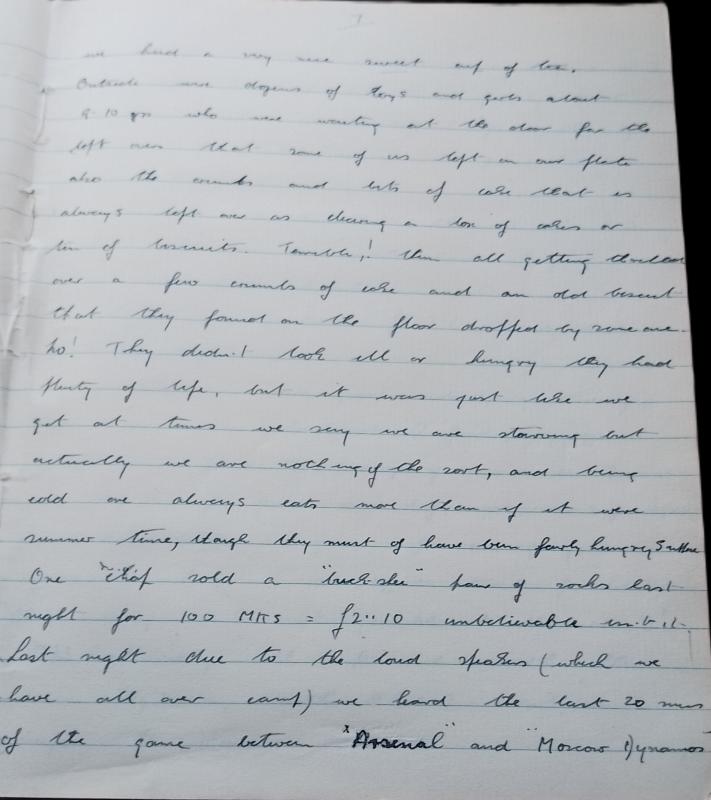 we had a very nice sweet cup of tea.
Outside were dozens of boys and girls about
9-10 yrs who were waiting at the door for the
left overs that some of us left on our plate
also the crumbs and bits of cake that is
always left over as clearing a box of cakes or
tin of biscuits. Terrible! them all getting
over a few crumbs of cake and an old biscuit
that they found on the floor dropped by some one.
No! They didn't look ill or hungry they had
plenty of life, but it was just like we
get at times we say we are starving but
actually we are nothing of the sort, and being
cold one always eats more than if it were
summer time, though they must of have been fairly hungry
One "chap sold a "buck-shee" pair of socks last
night for 100 MKS = £2..10 unbelievable isn't it.
Last night due to the loud speakers (which we
have all over camp) we heard the last 20 mins
of the game between "Arsenal" and "Moscow Dynamos